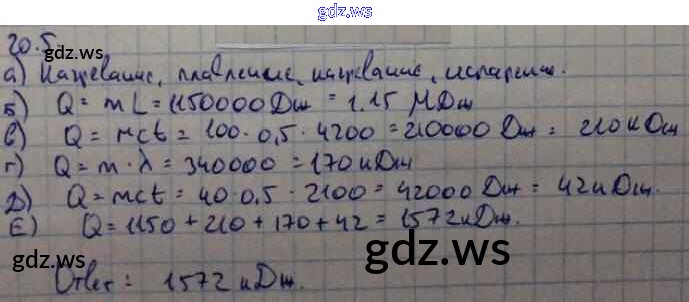 gdz.ws
20.5
gdz.ws
gdz.ws
а) Нагревание, плавление, нагревание, испарение.
Б) Q = mL = 1150000 Дж = 1.15 МДж
в) Q = mct = 100·0,5·4200 = 210000 Дж = 210 кДж
г) Q = m·λ = 340000 = 170 кДж
Д) Q = mct = 40·0.5·2100 = 42000 Дж = 42 кДж.
Е) Q = 1150 + 210 + 170 + 42 = 1572 кДж.
gdz.ws
gdz.ws
Ответ: 1572 кДж.